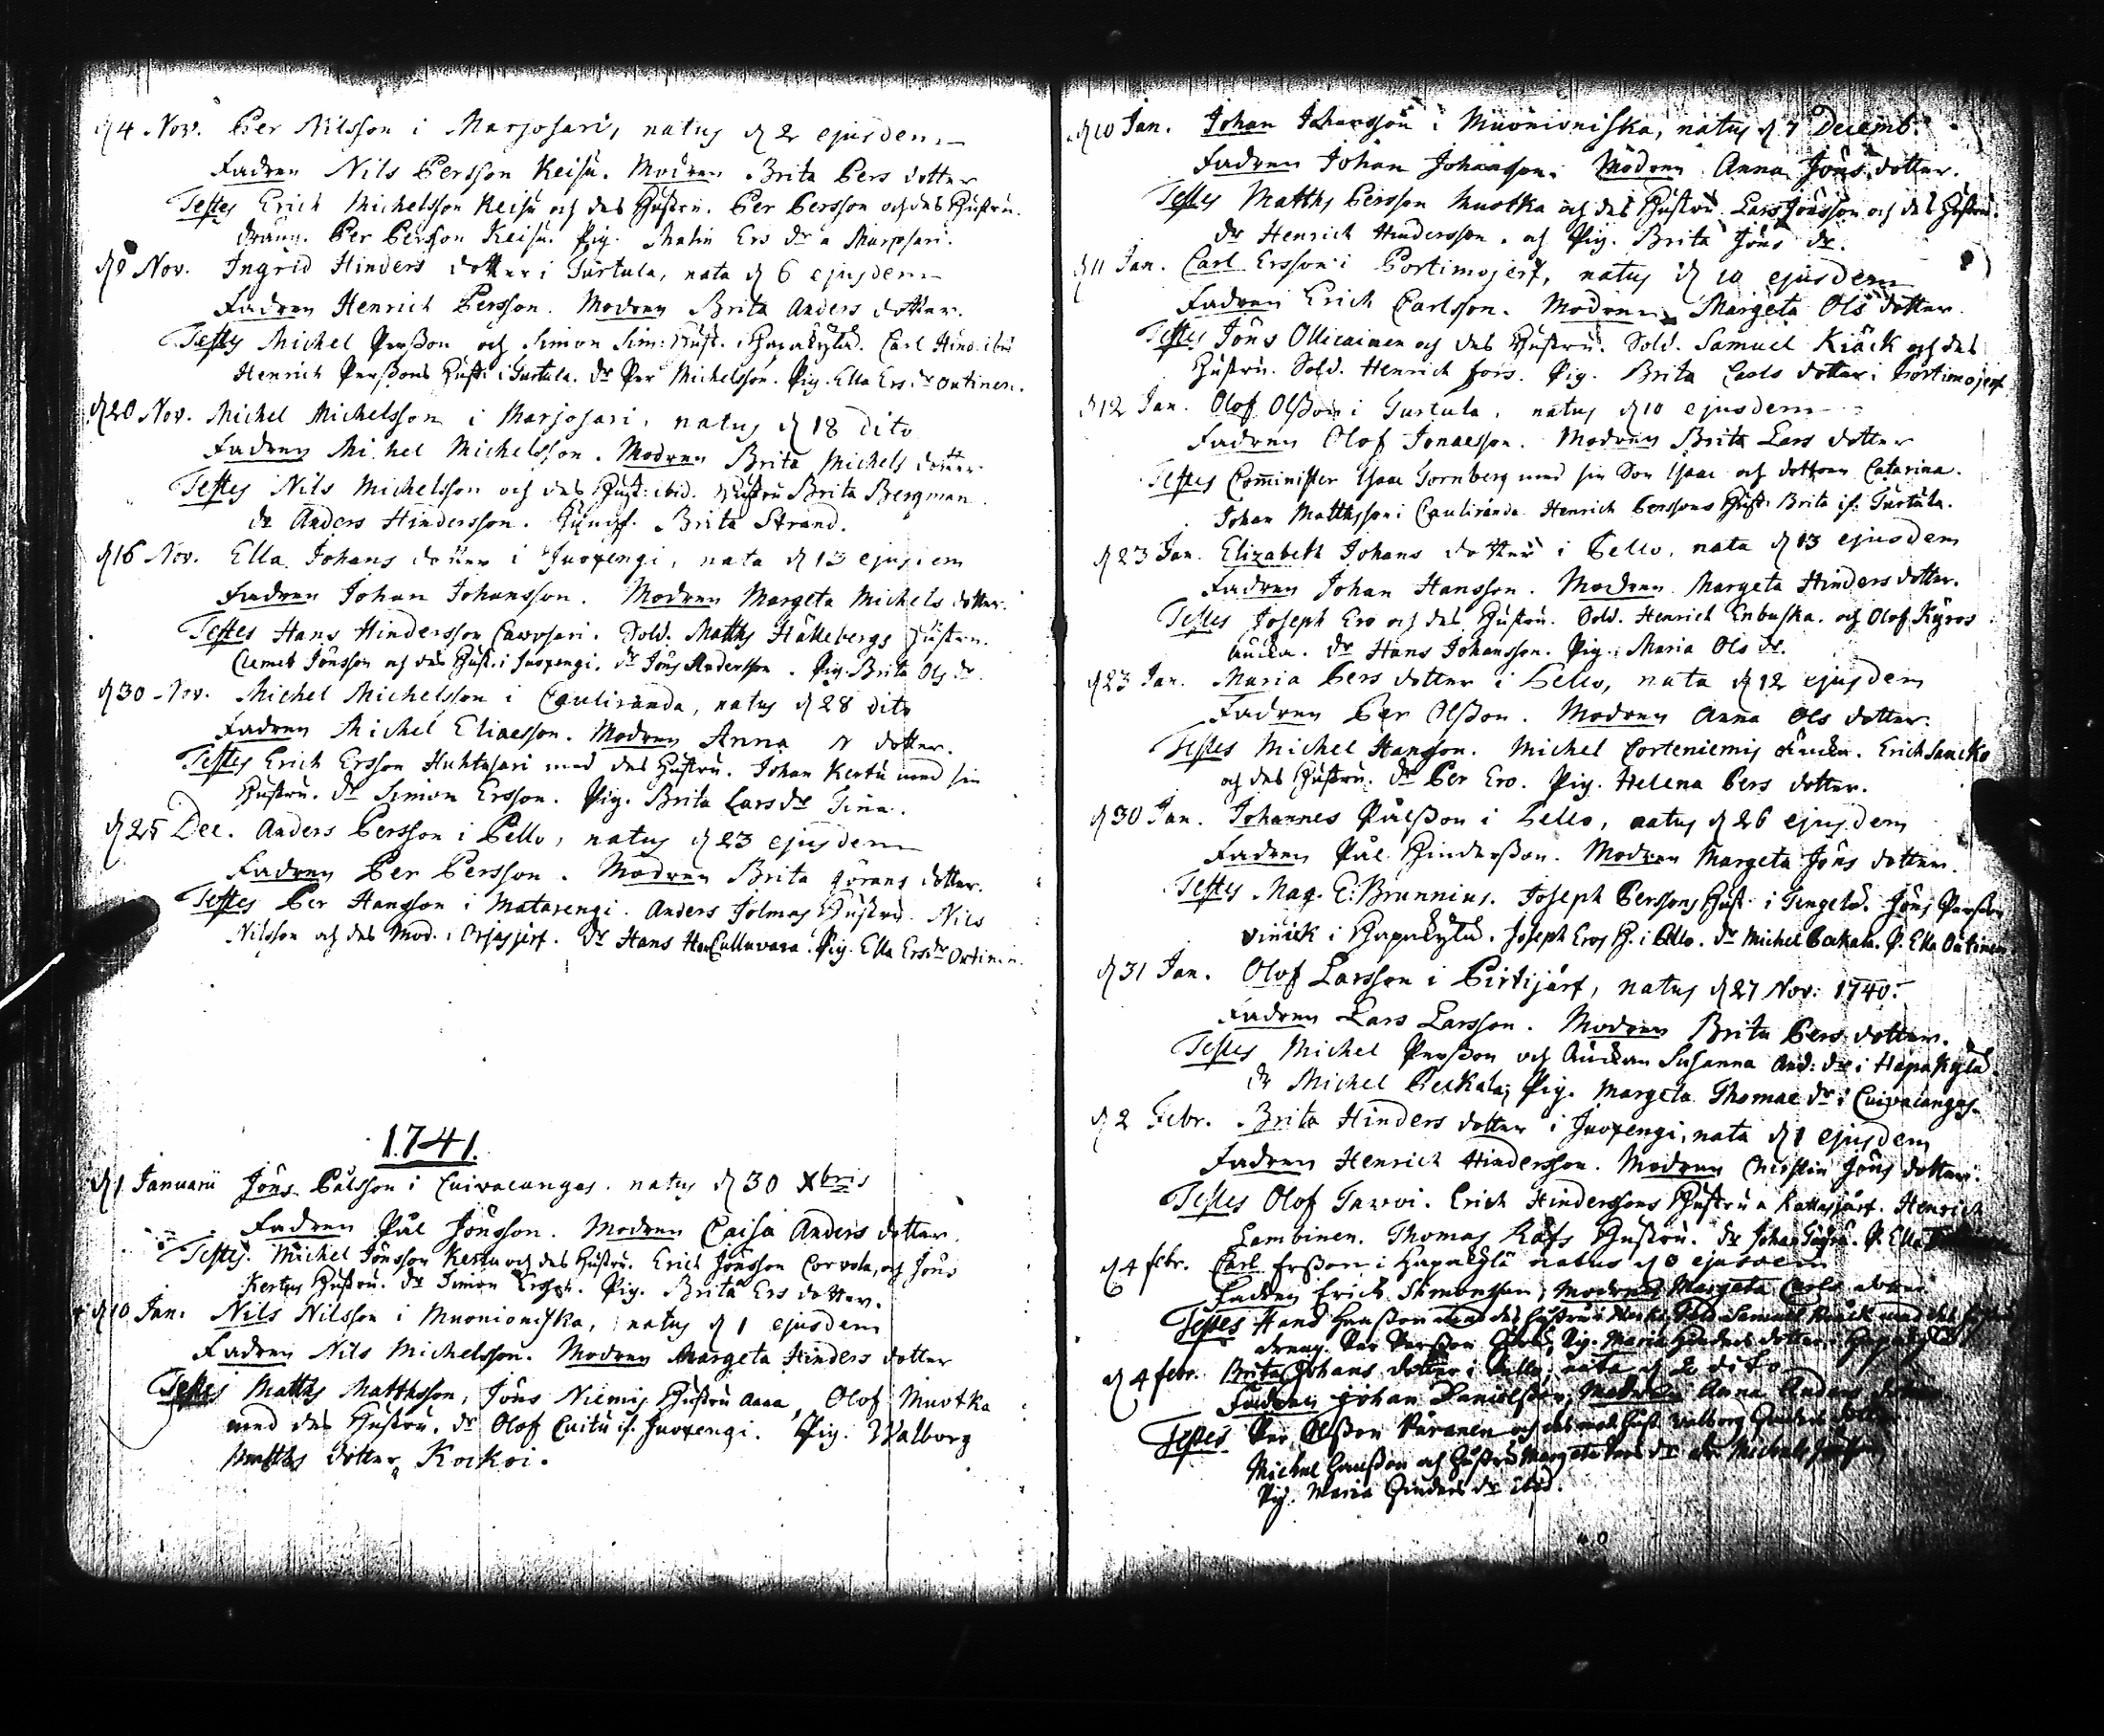 d 4 Nov. Per Nilsson i Marjosari, natus d 2 ejusdem
Fadren Nils Persson Keisu. Modren Brita Pers dotter
Testes Erich Michelsson Keisu och des Hustru. Per Persson och des Hustru.
dräng. Per Persson Keisu. Pig. Malin Ers dr a Marjosari.
d 8 Nov. Ingrid Hinders dotter i Turtula, nata d 6 ejusdem
Fadren Henrich Persson. Modren Brita Anders dotter.
Testes Michel Perßon och Simon Sim: Hust. i Hapakylä. Carl Hind. ibid
Henrich Perßons Hust. i Turtula. dr Per Michelsson. Pig. Ella Ers dr Outinen.
d 20 Nov. Michel Michelsson i Marjosari, natus d 18 dito
Fadren Michel Michelsson. Modren Brita Michels dotter.
Testes Nils Michelsson och des Hust: ibid. Hustru Brita Bergman.
dr Anders Hindersson. Jungf. Brita Strand.
d 16 Nov. Ella Johans dotter i Juoxengi, nata d 13 ejusdem
Fadren Johan Johansson. Modren Margeta Michels dotter.
Testes Hans Hindersson Carposari. Sold. Matths Häkebergs Hustru.
Clemet Jönsson och des Hust. i Juoxengi. dr Jöns Andersson. Pig. Brita Ols dr.
d 30 Nov. Michel Michelsson i Cauliranda, natus d 28 dito
Fadren Michel Eliaesson. Modren Anna N dotter.
Testes Erich Ersson Huhtasari med des Hustru. Johan Kertu med sin
Hustru. dr Simon Ersson. Pig. Brita Lars dr Tina.
d 25 Dec. Anders Persson i Pello, natus d 23 ejusdem
Fadren Per Persson. Modren Brita Görans dotter.
Testes Per Hansson i Matarengi. Anders Jolmas Hustru. Nils
Nilsson och des Mod. i Orjasjerf. dr Hans Cullavara. Pig. Ella Ers dr Outinen.
1741.
d 1 Januarii Jöns Pålsson i Cuivacangas. natus d 30 Xbris
Fadren Pål Jönsson. Modren Caisa Anders dotter.
Testes. Michel Jönsson Kertu och des Hustru. Erich Jönsson Corvola, och Jöns
Kertus Hustru. dr Simon Ersson. Pig. Brita Ers dotter.
d 10 Jan. Nils Nilsson i Muonioniska, natus d 1 ejusdem
Fadren Nils Michelsson. Modren Margeta Hinders dotter
Testes Matths Matthsson, Jöns Niemis Hustru Anna, Olof Muotka
med des Hustru. dr Olof Cuitu if. Juoxengi. Pig. Walborg
Matths dotter Kockoi.
d 10 Jan. Johan Johansson i Muonioniska, natus d 7 Decemb.
Fadren Johan Johansson. Modren Anna Jöns dotter.
Testes Matths Persson Muotka och des Hustru. Lars Jönsson och des Hustru.
dr Henrich Hindersson. och Pig. Brita Jöns dr.
d 11 Jan. Carl Ersson i Portimojerf, natus d 10 ejusdem
Fadren Erich Carlsson. Modren Margeta Ols dotter.
Testes Jöns Ollicainen och des Hustru. Sold. Samuel Kiäck och des
Hustru. Sold. Henrich Fors. Pig. Brita Carls dotter i Portimojerf
d 12 Jan. Olof Olßon i Turtula, natus d 10 ejusdem
Fadren Olof Jonaesson. Modren Brita Lars dotter
Testes Comminister Isaac Tornberg med sin Son Isaac och dottren Catarina.
Johan Matthsson i Cauliranda. Henrich Perssons Hust. Brita if. Turtula.
d 23 Jan. Elizabeth Johans dotter i Pello, nata d 13 ejusdem
Fadren Johan Hansson. Modren Margeta Hinders dotter.
Testes Joseph Ero och des Hustru. Sold. Henrich Enbuska. och Olof Kyros
änka. dr Hans Johansson. Pig. Maria Ols dr.
d 23 Jan. Maria Pers dotter i Pello, nata d 12 ejusdem
Fadren Per Olßon. Modren Anna Ols dotter.
Testes Michel Hansson. Michel Corteniemis änka. Erich Saucko
och des Hustru. dr Per Ero. Pig. Helena Pers dotter.
d 30 Jan. Johannes Pålßon i Pello, natus d 26 ejusdem
Fadren Pål Hinderßon. Modren Margeta Jöns dotter.
Testes Mag. E: Brunnius. Joseph Perssons Hust. i Tengelö. Jöns Perßon
vinick i Hapakylä. Joseph Eros H. i Pello. dr Michel Peckala. P. Ella Outinen.
d 31 Jan. Olof Larsson i Pirtijärf, natus d 27 Nov: 1740.
Fadren Lars Larsson. Modren Brita Pers dotter.
Testes Michel Perßon och änkan Susanna And: dr i Hapakylä
dr Michel Peckala; Pig. Margeta Thomae dr i Cuivacangas.
d 2 Febr. Brita Hinders dotter i Juoxengi, nata d 1 ejusdem
Fadren Henrich Hindersson. Modren Christin Jöns dotter.
Testes Olof Tarvoi. Erich Hinderssons Hustru a Rattasjärf. Henrich
Lambinen. Thomas Räfs Hustru. dr Johan P. Ella
d 4 febr. Carl Erßon i Hapakylä natus d ejusdem
Fadren Erich Simonsson, Modren Margeta Carls dotter
Testes Hans Hansson med des Hustru Sold. Samuel Kiäck med des Hustru
dreng. Per Perßon Pig. Maria Hinders dotter Hapakylä
d 4 febr. Brita Johans dotter i Pello, nata d 2 dito
Fadren Johan Danielsson, Modren Anna Anders dotter
Testes Per Olßon Paranen och des mod. Hust. Walborg Hinders dotter
Michel Hanßon och Hustru Margeta Lars dr dr Michel
Pig. Maria Hinders dr ibid.